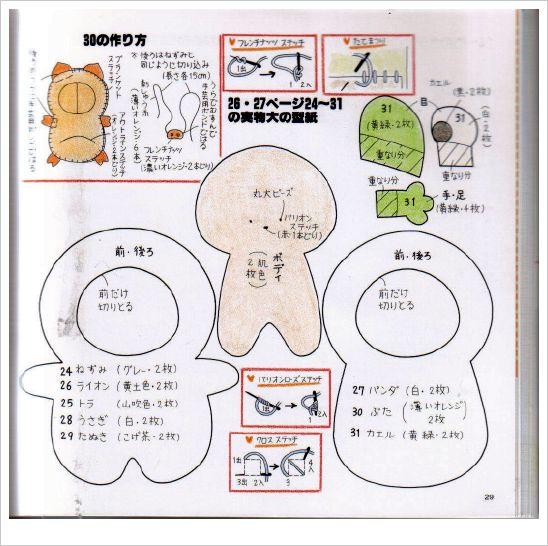 30の作り方
※後ろはねずみと
同じように切り込み
(長さ各15cm)
ブランケット
ステッチ
アウトラインステッチ
(オレンジ・2本どり)
刺しゅう糸
(薄いオレンジ・6本)
うらでむすんで
手芸用ボンドではる
フレンチナッツ
ステッチ
(濃いオレンジ・2本どり)
フレンチナッツ ステッチ
1出
1
2入
たてまつり
26・27ページ24〜31
の実物大の型紙
31
(黄緑・2枚)
重なり分
目
カエル
(黒・2枚)
(白・2枚)
31
重なり分
重なり分
31
手・足
(黄緑・4枚)
丸大ビーズ
バリオン
ステッチ
(赤・1本どり)
ボディ
(肌色)
2枚
前・後ろ
前だけ
切りとる
24 ねずみ (グレー・2枚)
26 ライオン (黄土色・2枚)
25 トラ (山吹色・2枚)
28 うさぎ (白・2枚)
29 たぬき (こげ茶・2枚)
バリオンローズステッチ
クロス ステッチ
1出
3出 2入
4入
3
前・後ろ
前だけ
切りとる
27 パンダ (白・2枚)
30 ぶた (薄いオレンジ 2枚)
31 カエル (黄緑・2枚)
29